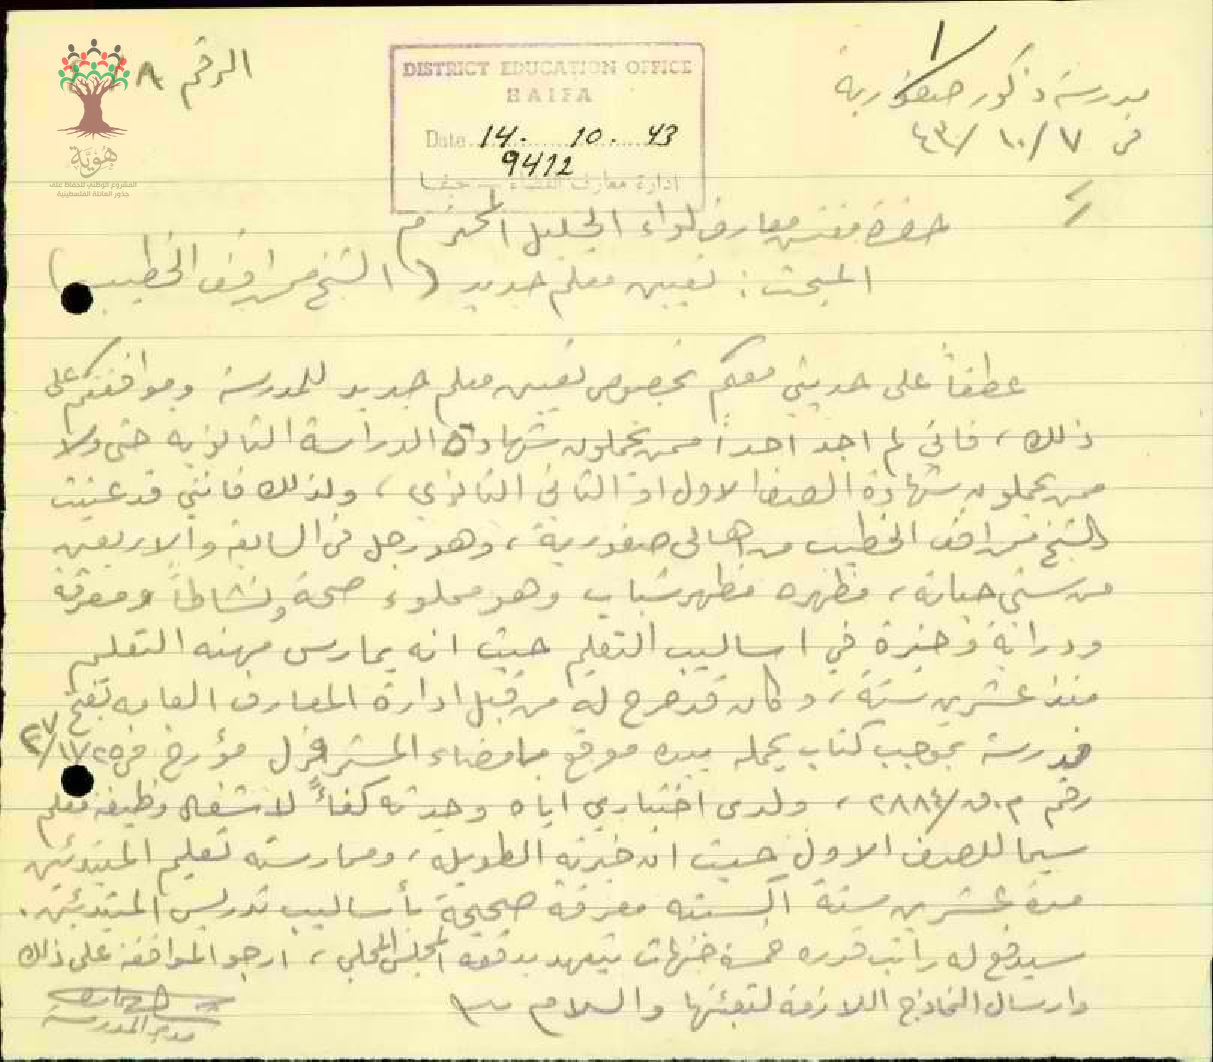 مدرسة ذكور صفورية
في ٧/١٠/٤٣
الرقم ٨
DISTRICT EDUCATION OFFICE
HAIFA
Date 14. 10. 43
9412
ادارة معارف القضاء – حيفا
هُوِيَّة
المشروع الوطني للحفاظ على
جذور العائلة الفلسطينية
حضرة مفتش معارف لواء الجليل المحترم
المبحث: تعيين معلم جديد (الشيخ محمد راغب الخطيب)
عطفاً على حديثي معكم بخصوص تعيين معلم جديد للمدرسة وموافقتكم على
ذلك، فاني لم اجد احداً ممن يحملون شهادة الدراسة الثانوية حتى ولا
ممن يحملون شهادة الصف الاول او الثاني الثانوي، ولذلك فانني قد عينت
الشيخ الخطيب من اهالي صفورية، وهو رجل في السابعة والاربعين
من سني حياته، مظهره مظهر شباب وهو مملوء صحة ونشاطاً ومعرفة
ودراية وخبرة في اساليب التعليم حيث انه يمارس مهنة التعليم
منذ عشرين سنة، وكان قد صرح له من قبل ادارة المعارف العامة بفتح
مدرسة بموجب كتاب يحمله بيده موقع بامضاء المستر مؤرخ في
رقم م.ق/٢٨٨٤، ولدى اختباري اياه وجدته كفأً لاشغال وظيفة معلم
سيما للصف الاول حيث ان خبرته الطويلة، وممارسته تعليم المبتدئين
مدة عشرين سنة اكسبته معرفة صحيحة بأساليب تدريس المبتدئين.
سيدفع له راتب قدره خمسة جنيهات يتعهد بدفعه المجلس المحلي، ارجو الموافقة على ذلك
وارسال النماذج اللازمة لتعبئتها والسلام
مدير المدرسة